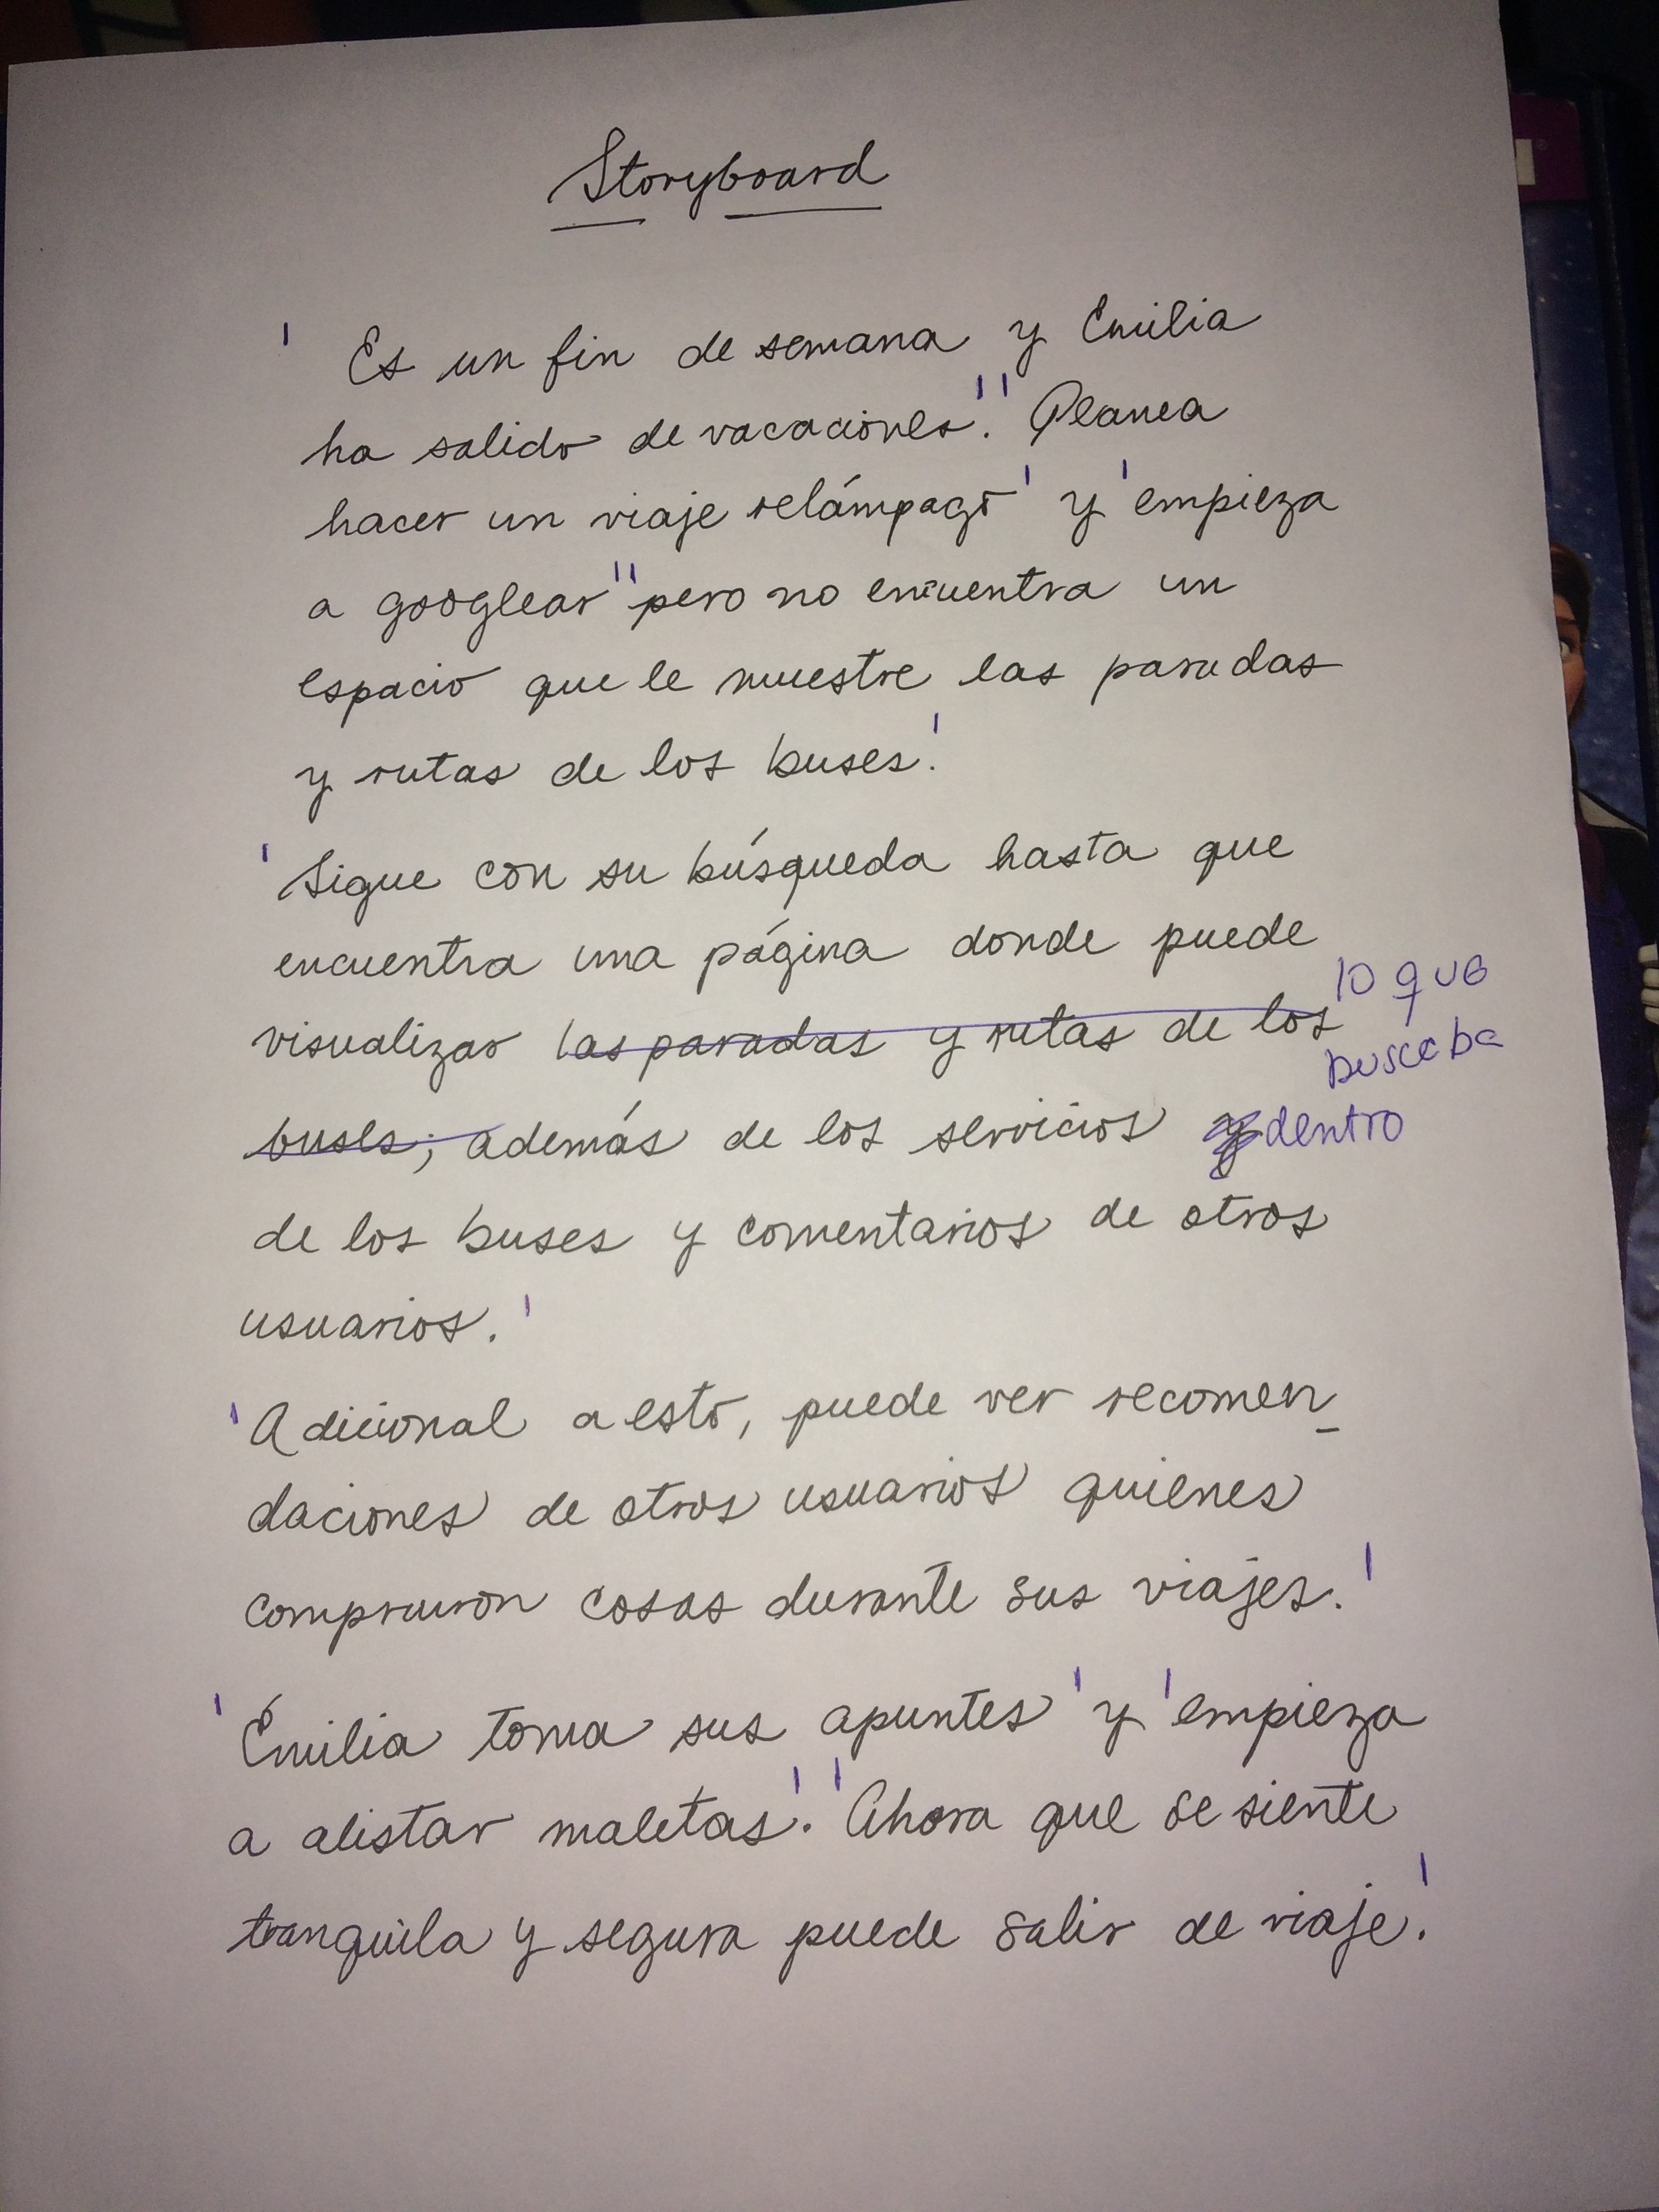 Storyboard
' Es un fin de semana y Emilia
ha salido de vacaciones.'' Planea
hacer un viaje relámpago' y 'empieza
a googlear'' pero no encuentra un
espacio que le muestre las paradas
y rutas de los buses.'
'Sigue con su búsqueda hasta que
encuentra una página donde puede
visualizar las paradas y rutas de los lo que
buscaba
buses; además de los servicios y dentro
de los buses y comentarios de otros
usuarios.'
'Adicional a esto, puede ver recomen-
daciones de otros usuarios quienes
compraron cosas durante sus viajes.'
'Emilia toma sus apuntes' y 'empieza
a alistar maletas.' 'Ahora que se siente
tranquila y segura puede salir de viaje.'